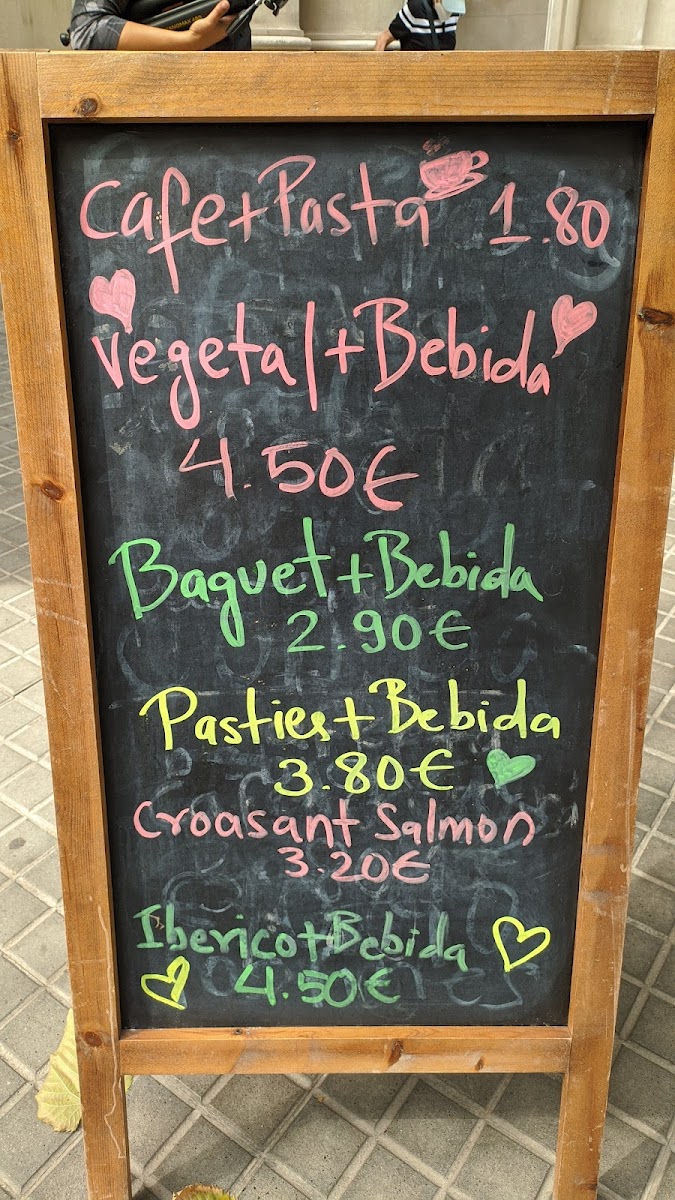 Cafe+Pasta 1.80
Vegetal+Bebida
4.50€
Baguet+Bebida
2.90€
Pasties+Bebida
3.80€
Croasant Salmon
3.20€
Iberico+Bebida
4.50€